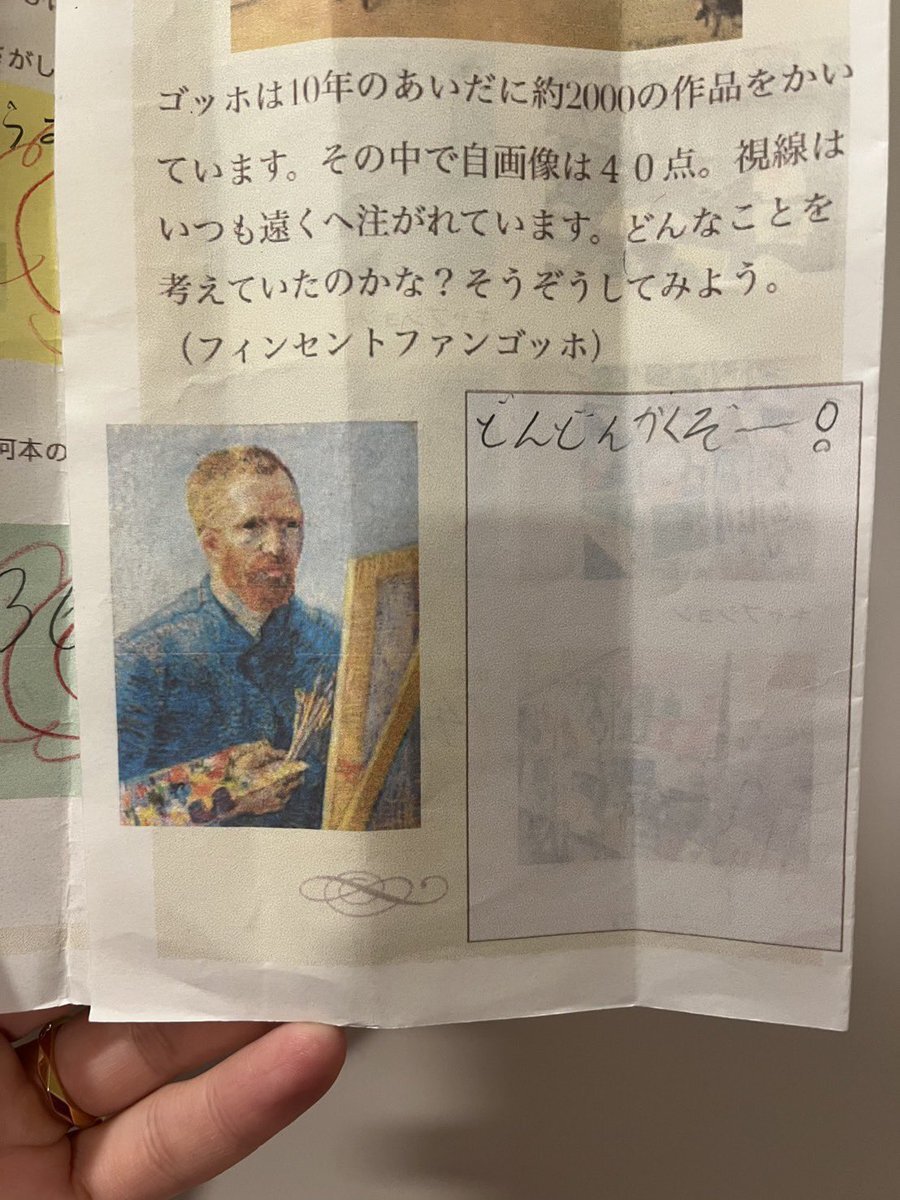 がし
ゴッホは10年のあいだに約2000の作品をかい
ています。その中で自画像は４０点。視線は
いつも遠くへ注がれています。どんなことを
考えていたのかな？そうぞうしてみよう。
（フィンセントファンゴッホ）
どんどんかくぞー！
河本の
36